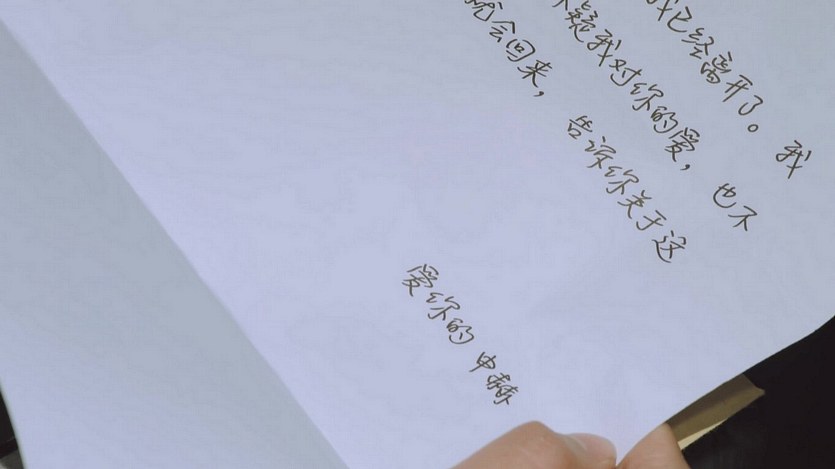 我已经离开了。我
疑我对你的爱,也不
就会回来,告诉你关于这
爱你的 申赫